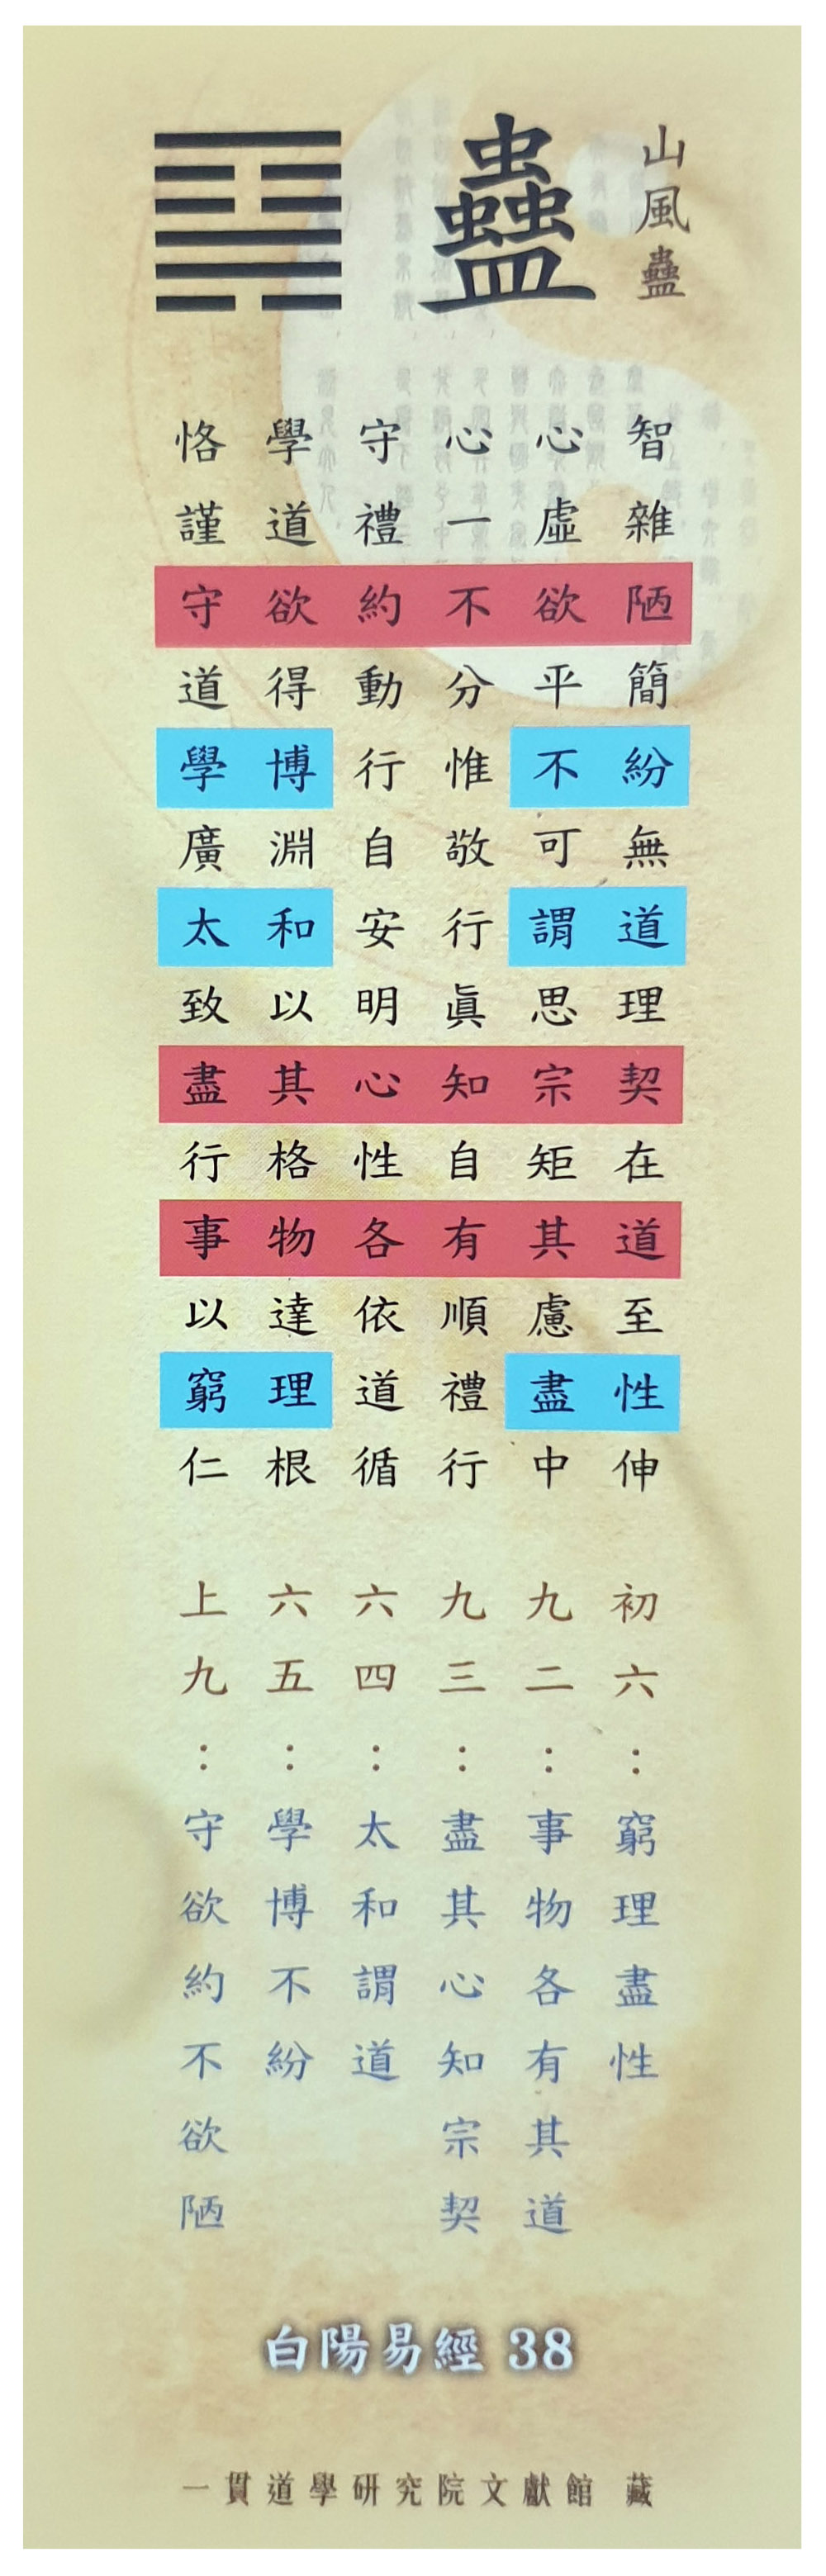 山風蠱
蠱
智雜陋簡紛無道理契在道至性伸
心虛欲平不可謂思宗矩其慮盡中
心一不分惟敬行眞知自有順禮行
守禮約動行自安明心性各依道循
學道欲得博淵和以其格物達理根
恪謹守道學廣太致盡行事以窮仁
初六：窮理盡性
九二：事物各有其道
九三：盡其心知宗契
六四：太和謂道
六五：學博不紛
上九：守欲約不欲陋
白陽易經 38
一貫道學研究院文獻館 藏